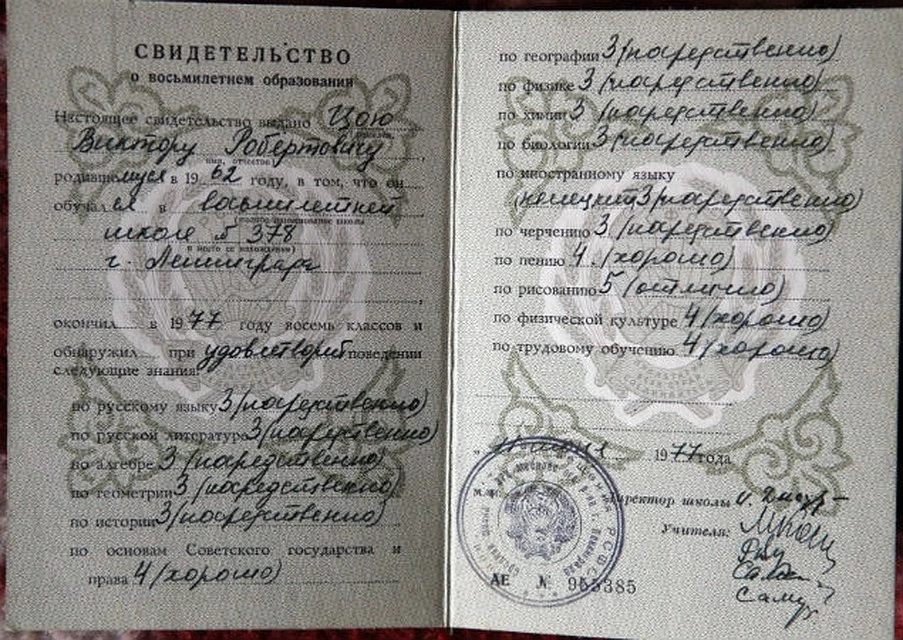 СВИДЕТЕЛЬСТВО
о восьмилетнем образовании
Настоящее свидетельство выдано Цою
Виктору Робертовичу
имя, отчество
родившемуся в 1962 году, в том, что он
обучался в восьмилетней
(полное наименование школы
школе № 378
и место ее нахождения)
г. Ленинграда
окончил в 1977 году восемь классов и
обнаружил при удовлетворит поведении
следующие знания:
по русскому языку 3 (посредственно)
по русской литературе 3 (посредственно)
по алгебре 3 (посредственно)
по геометрии 3 (посредственно)
по истории 3 (посредственно)
по основам Советского государства и
права 4 (хорошо)
по географии 3 (посредственно)
по физике 3 (посредственно)
по химии 3 (посредственно)
по биологии 3 (посредственно)
по иностранному языку
(немецкий) 3 (посредственно)
по черчению 3 (посредственно)
по пению 4 (хорошо)
по рисованию 5 (отлично)
по физической культуре 4 (хорошо)
по трудовому обучению 4 (хорошо)
1977 года
Директор школы
Учителя:
РСФСР
АЕ № 955385